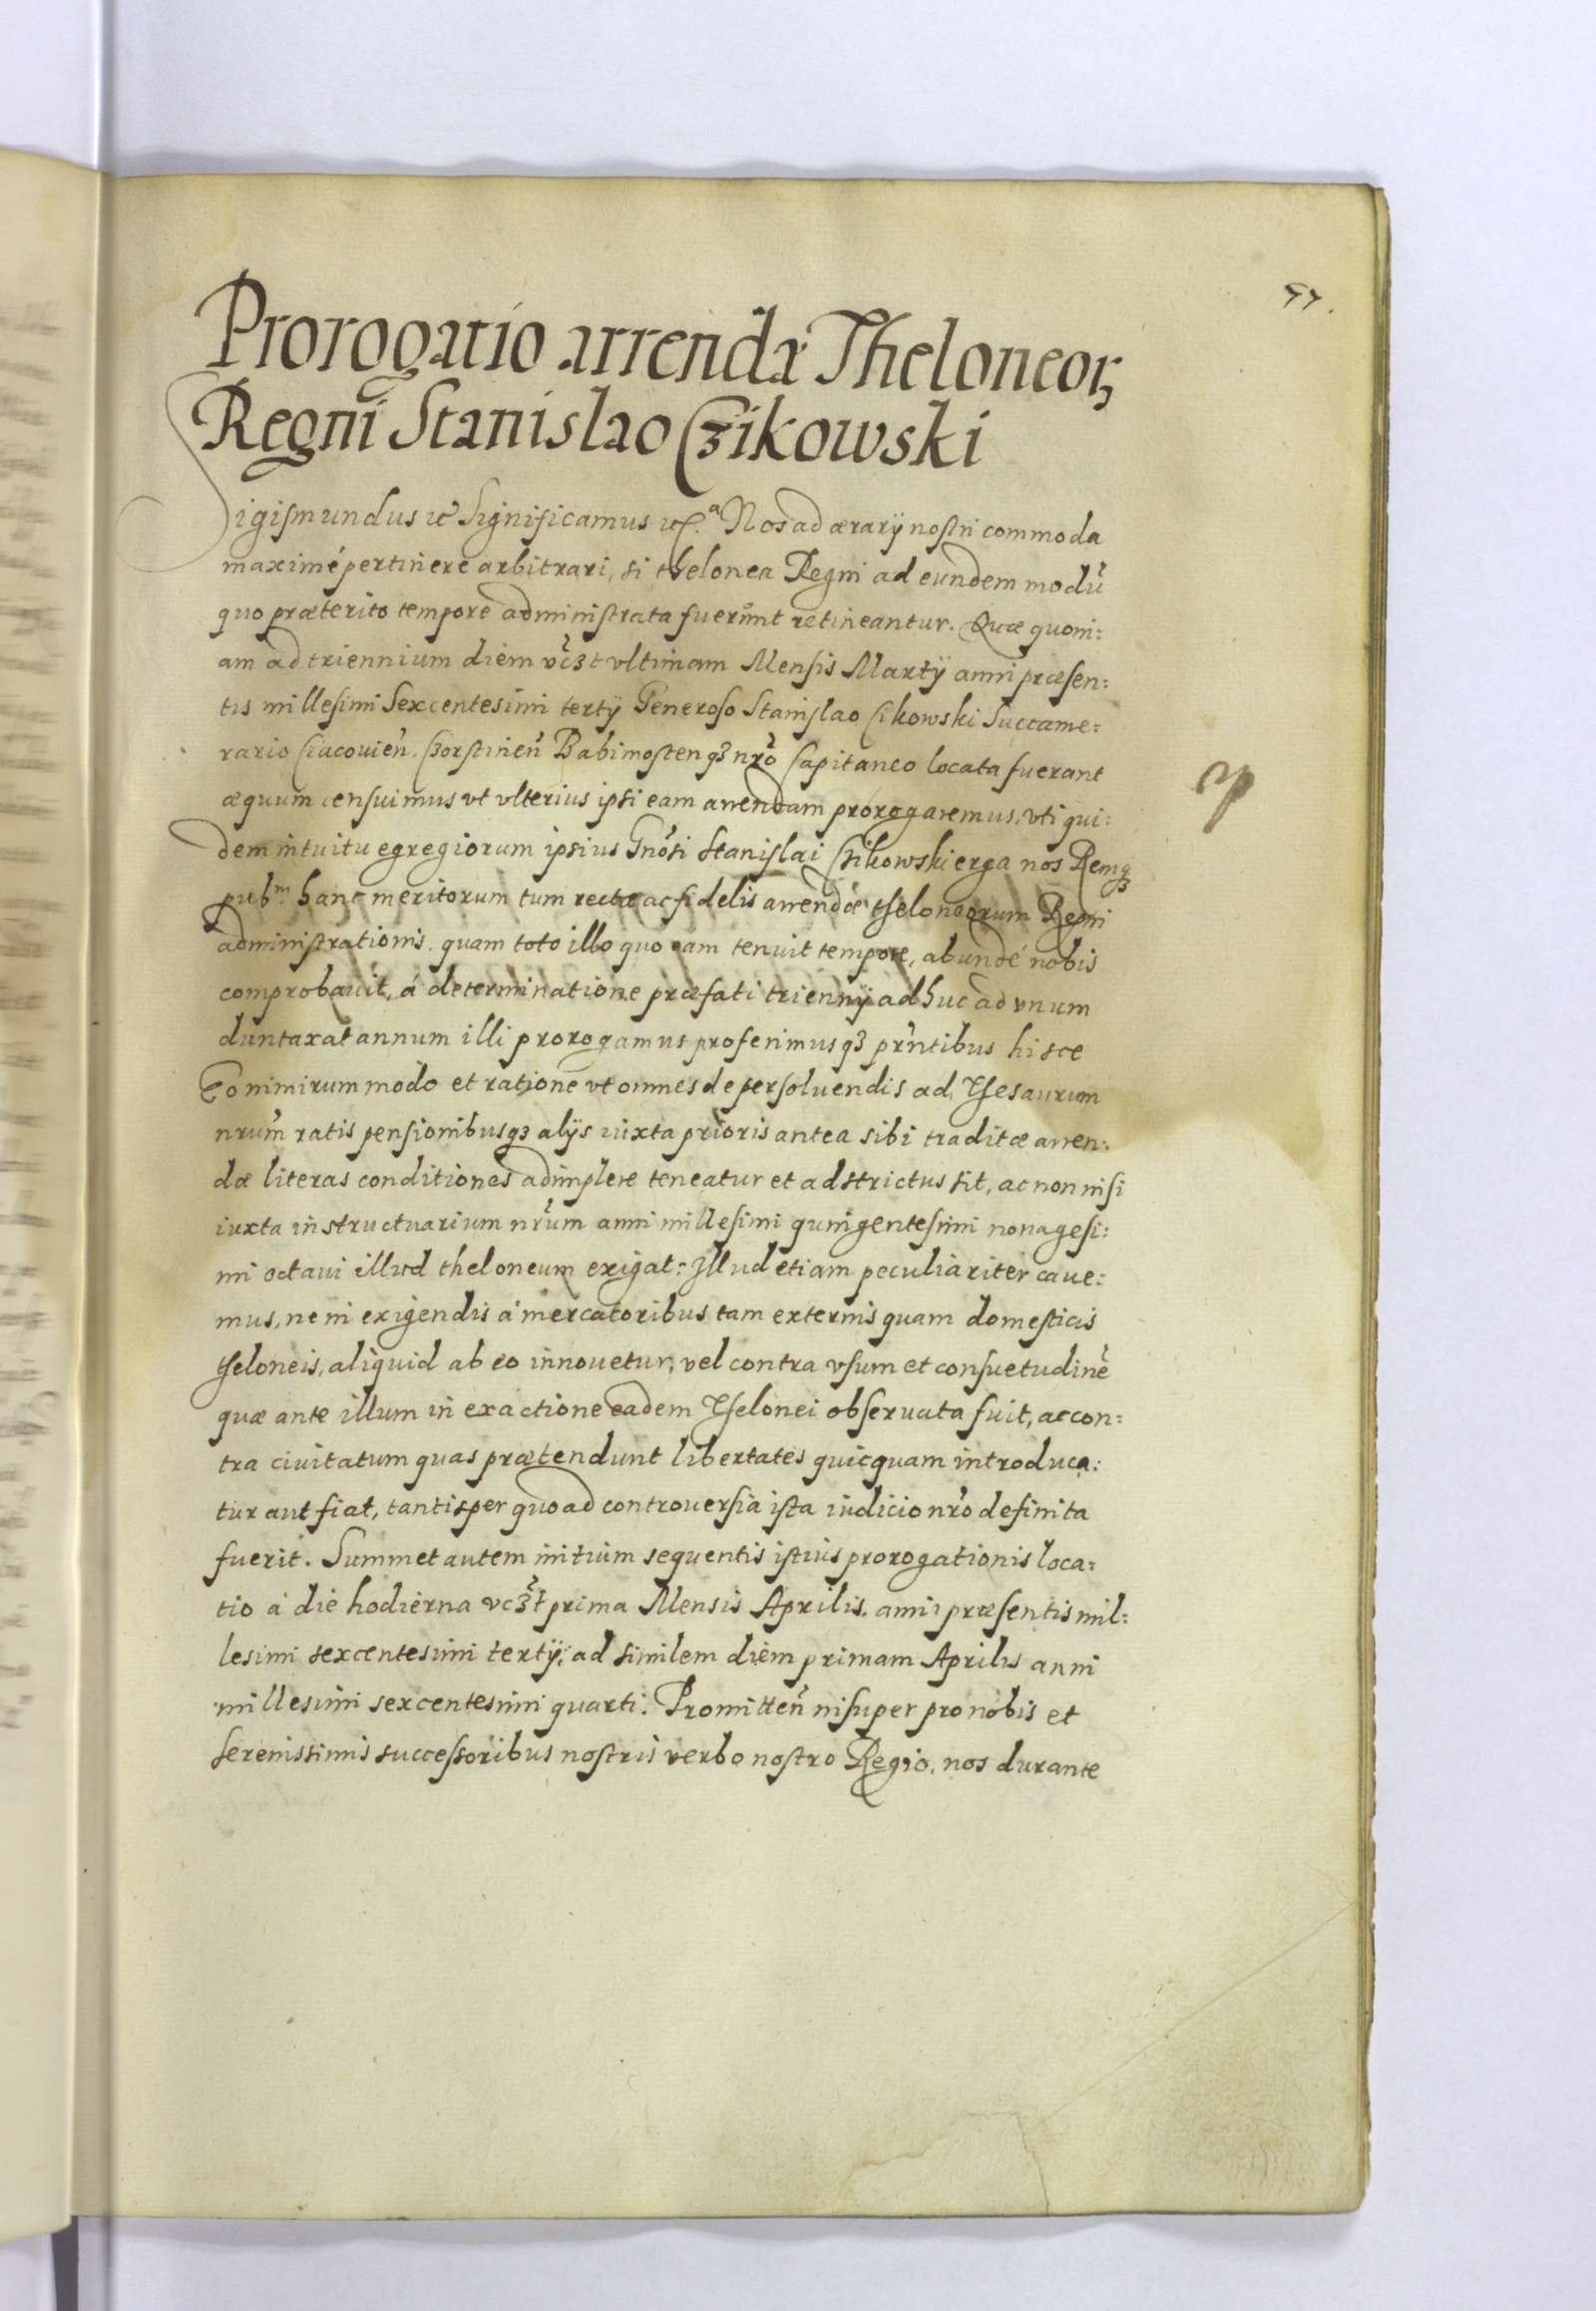 57.
Prorogatio arrendæ Theloneorꝫ
Regni Stanislao Czikowski
Sigismundus ꝛc Significamus ꝛc.ᵃ Nos ad ærarÿ nostri commoda
maximé pertinere arbitrari, si thelonea Regni ad eundem modū
quo præterito tempore administrata fuerunt retineantur. Quæ quoni:
am ad triennium diem vcꝫt vltimam Mensis Martÿ anni præsen:
tis millesimi Sexcentesimi tertÿ Generoso Stanislao Cikowski Succame:
rario Cracouien̄. Czorstinen̄ Babimosten qꝫ nr̄o Capitaneo locata fuerant
æquum censuimus vt vlterius ipsi eam arrendam prorogaremus, vti qui:
dem intuitu egregiorum ipsius Gnōsi Stanislai Czikowski erga nos Remqꝫ
pubᵐ. hanc meritorum tum rectæ ac fidelis arrendæ theloneorum Regni
administrationis, quam toto illo quo eam tenuit tempore, abundé nobis
comprobauit, á determinatione præfati triennÿ adhuc ad vnum
duntaxat annum illi prorogamus proferimusqꝫ prn̄tibus hisce
Eo nimirum modo et ratione vt omnes de persoluendis ad Thesaurum
nrum̄ ratis pensionibusqꝫ alÿs iuxta prioris antea sibi traditæ arren:
dæ literas conditiones adimplere teneatur et adstrictus sit, ac non nisi
iuxta instructuarium nrūm anni millesimi quingentesimi nonagesi:
mi octaui illud theloneum exigat: Illud etiam peculiariter caue:
mus, ne in exigendis á mercatoribus tam externis quam domesticis
theloneis, aliquid ab eo innouetur, vel contra vsum et consuetudinē
quæ ante illum in exactione eadem Thelonei obseruata fuit, ac con:
tra ciuitatum quas prætendunt libertates quicquam introduca:
tur aut fiat, tantisper quoad controuersia ista iudicio nrō definita
fuerit. Summet autem initium sequentis istius prorogationis loca:
tio á die hodierna vcꝫt prima Mensis Aprilis. anni præsentis mil:
lesimi sexcentesimi tertÿ, ad similem diem primam Aprilis anni
millesimi sexcentesimi quarti. Promitten̄ insuper pro nobis et
serenissimis successoribus nostris verbo nostro Regio, nos durante